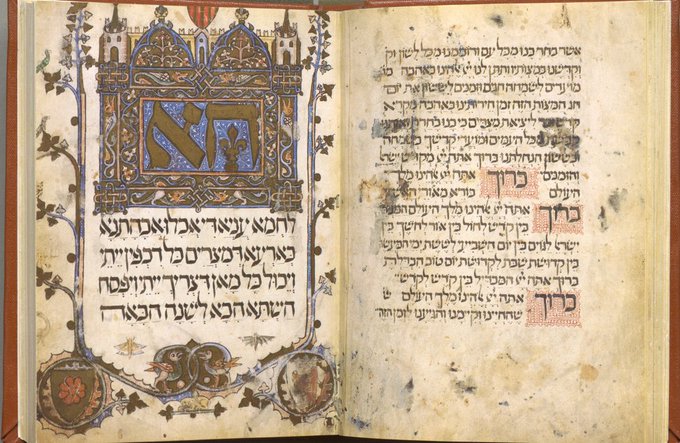 אשר בחר בנו מכל עם ורוממנו מכל לשון וק
וקדשנו במצותיו ותתן לנו יי אלהינו באהבה מו
מועדים לשמחה חגים וזמנים לששון את יום
חג המצות הזה זמן חירותינו באהבה מקרא
ליציאת מצרים כי בנו
מכל העמים ומועדי קדשיך בשמחה
ובששון הנחלתנו ברוך אתה יי מקדש
והזמנים ברוך אתה יי אלהינו מלך
העולם בורא מאורי
ברוך אתה יי אלהינו מלך העולם
בין קדש לחול בין אור לחשך בין
ישראל לגוים בין יום השביעי לששת ימי
בין קדושת שבת לקדושת יום טוב הבדלת
אתה יי המבדיל בין קדש לקדש
ברוך אתה יי אלהינו מלך העולם ש
שהחיינו וקיימנו והגיענו לזמן הזה
הא
לחמא עניא די אכלו אבהתנא
בארעא דמצרים כל דכפין ייתי
ויכול כל מאן דצריך ייתי ויפסח
השתא הכא לשנה הבאה